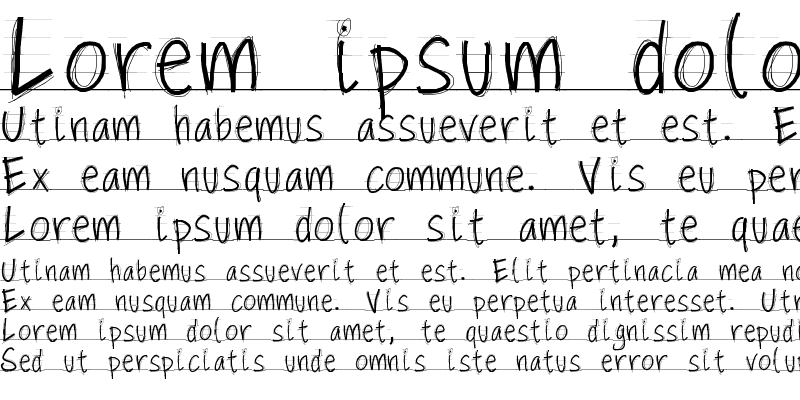 Lorem ipsum dolo
Utinam habemus assueverit et est. E
Ex eam nusquam commune. Vis eu per
Lorem ipsum dolor sit amet, te quae
Utinam habemus assueverit et est. Elit pertinacia mea no
Ex eam nusquam commune. Vis eu perpetua interesset. Utr
Lorem ipsum dolor sit amet, te quaestio dignissim repudi
Sed ut perspiciatis unde omnis iste natus error sit volu